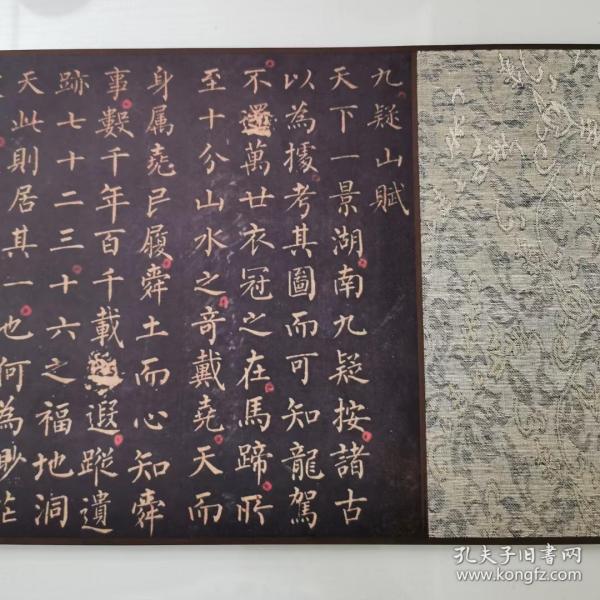 九疑山賦
天下一景湖南九疑按諸古
以為據考其圖而可知龍駕
不還萬廿衣冠之在馬蹄所
至十分山水之奇戴堯天而
身属堯民履舜土而心知舜
事數千年百千載遐蹤遺
跡七十二三十六之福地洞
天此則居其一也何為渺茫
孔夫子旧书网
www.kongfz.com